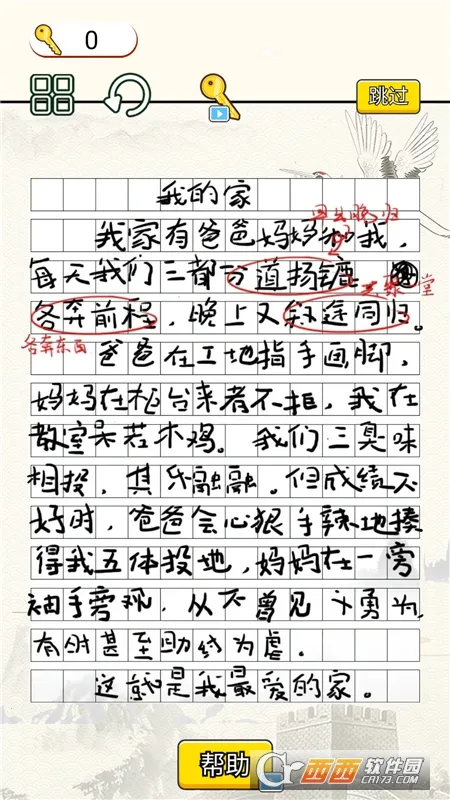 0
跳过
我的家
早出晚归
我家有爸爸妈妈和我，
每天我们三都分道扬镳，
聚 堂
各奔前程，晚上又殊途同归。
各奔东西
爸爸在工地指手画脚，
妈妈在柜台来者不拒，我在
教室呆若木鸡。我们三臭味
相投，其乐融融。但成绩不
好时，爸爸会心狠手辣地揍
得我五体投地，妈妈在一旁
袖手旁观，从不曾见 勇为，
有时甚至助纣为虐。
这就是我最爱的家。
帮助
西西软件园
CR173.COM